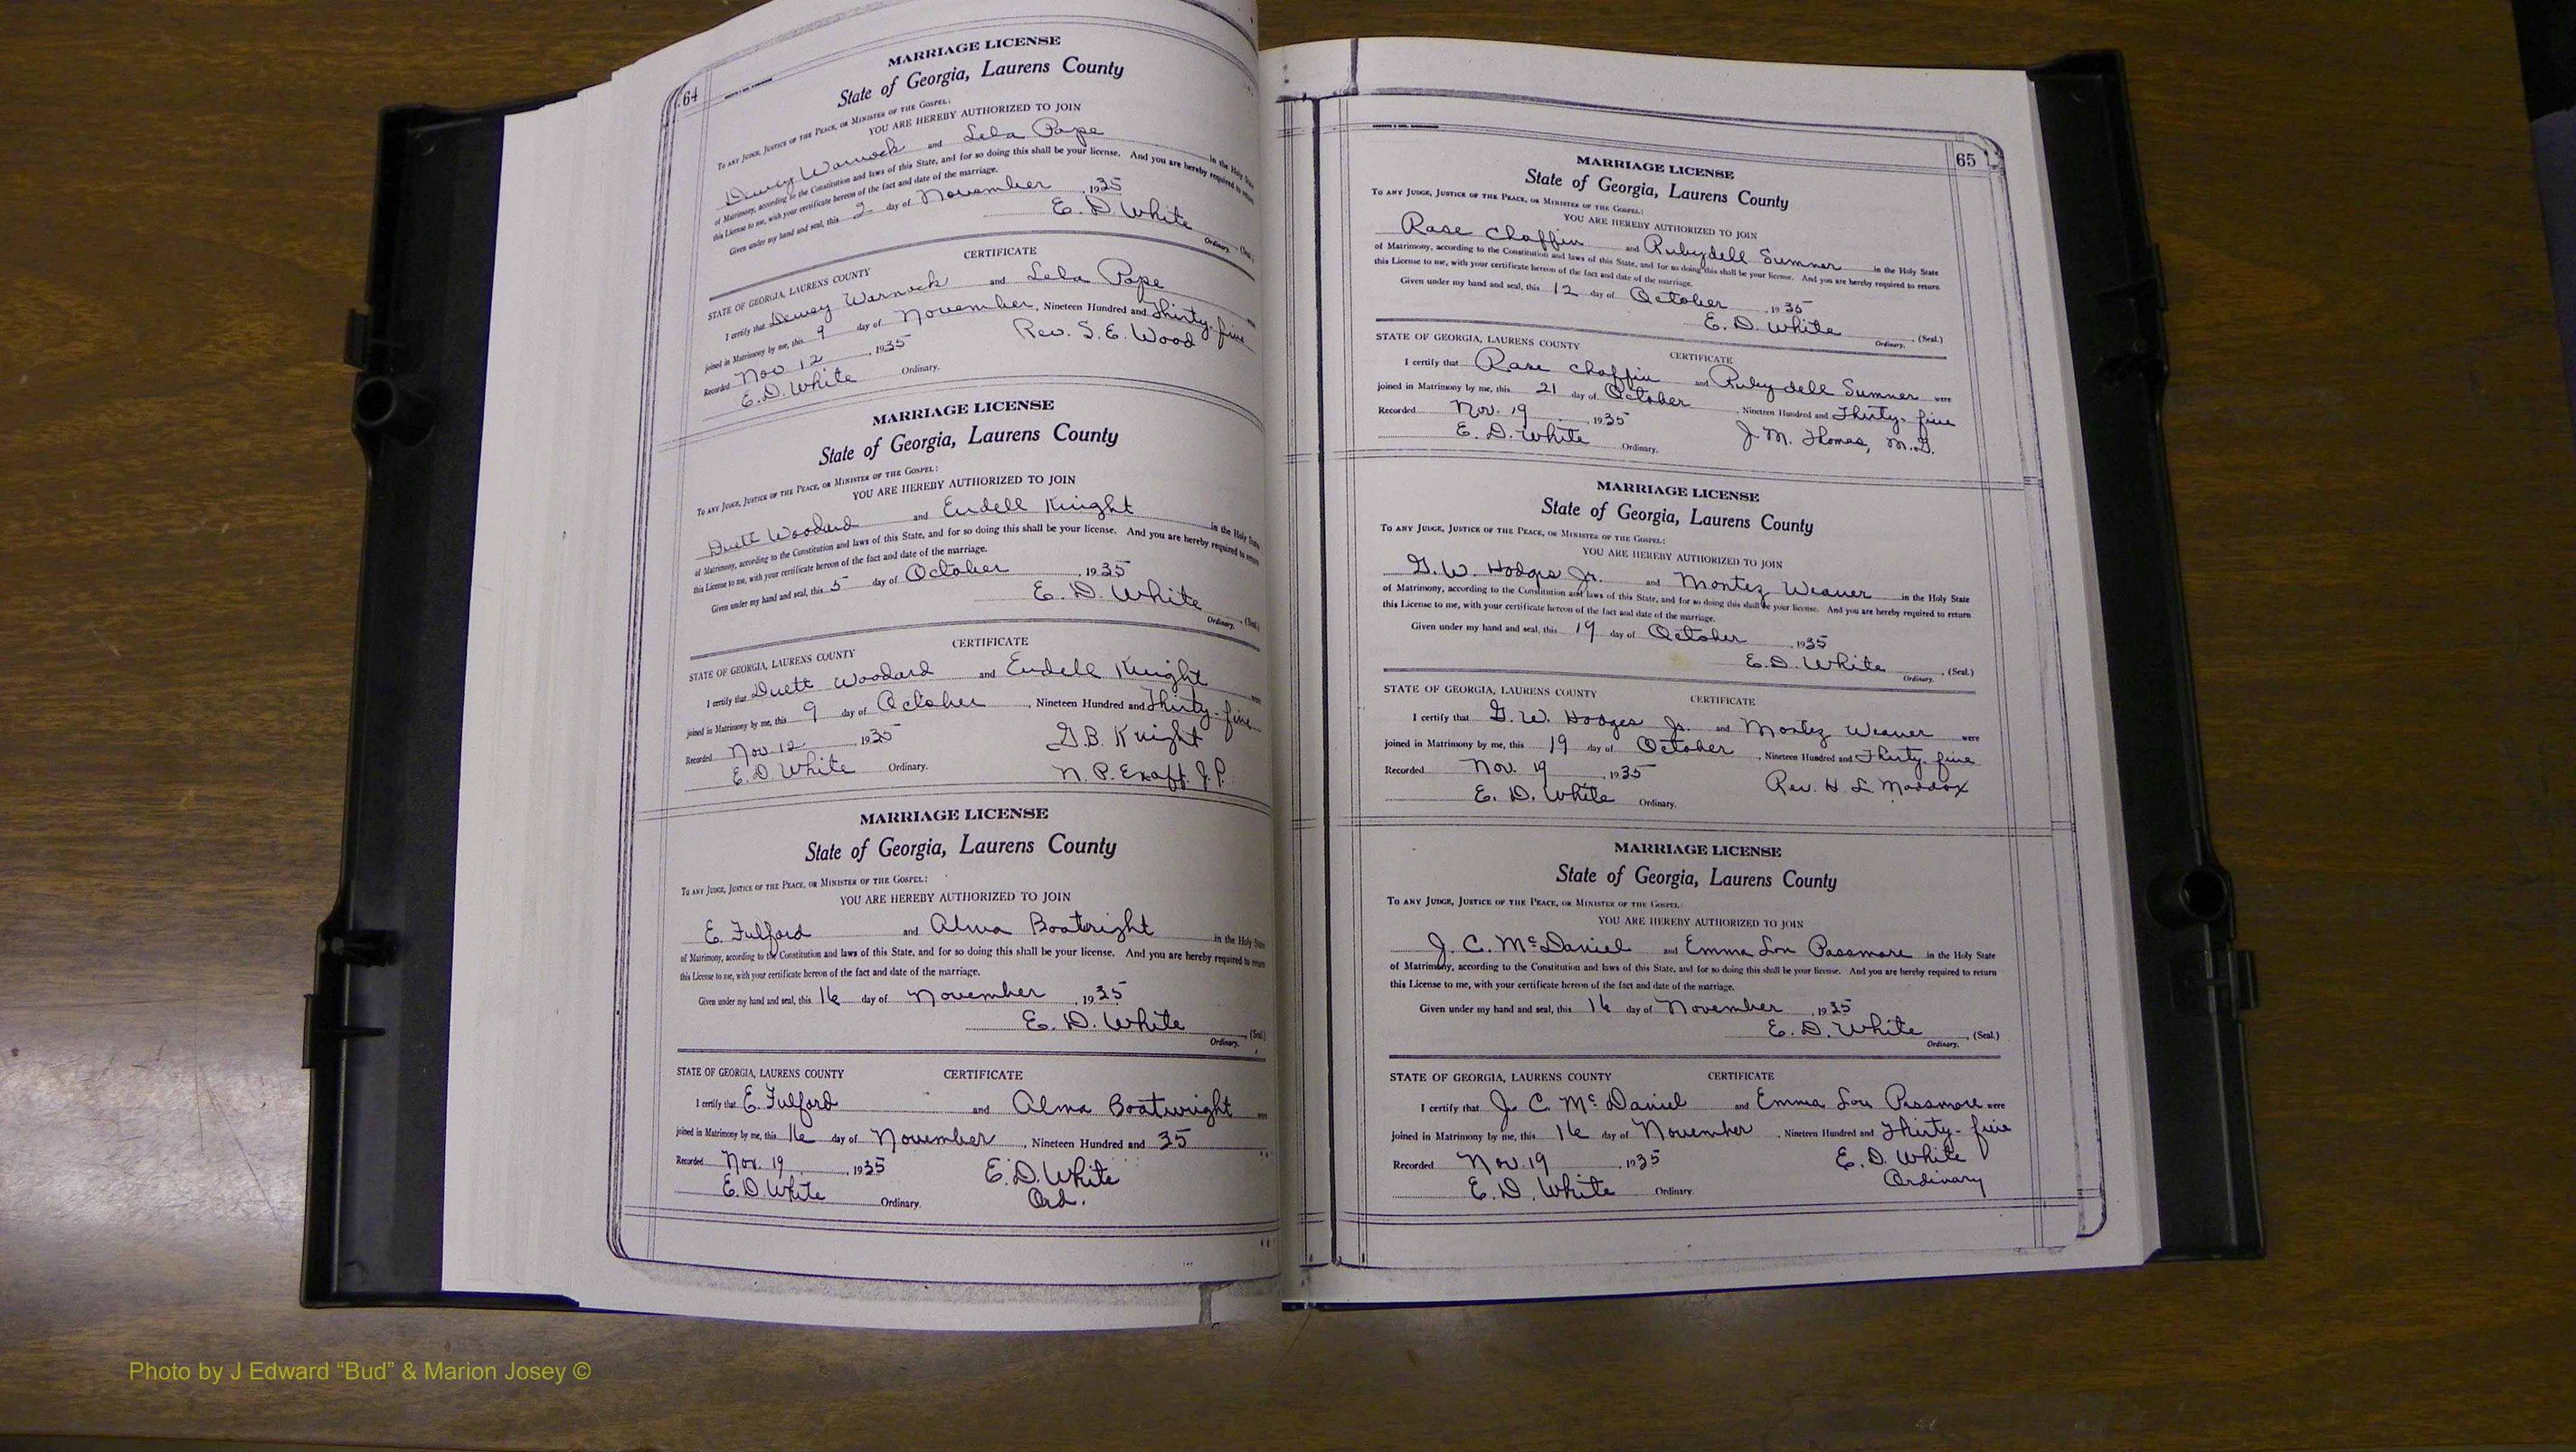 64
MARRIAGE LICENSE
State of Georgia, Laurens County
To any Judge, Justice of the Peace, or Minister of the Gospel:
YOU ARE HEREBY AUTHORIZED TO JOIN
Dewey Warnock and Lela Pope in the Holy State
of Matrimony, according to the Constitution and laws of this State, and for so doing this shall be your license. And you are hereby required to return
this License to me, with your certificate hereon of the fact and date of the marriage.
Given under my hand and seal, this 2 day of November, 1935
E. D. White
Ordinary. (Seal.)
CERTIFICATE
STATE OF GEORGIA, LAURENS COUNTY
I certify that Dewey Warnock and Lela Pope were
joined in Matrimony by me, this 9 day of November, Nineteen Hundred and Thirty-five
Recorded Nov 12, 1935 Rev. S. E. Wood
E. D. White Ordinary.
MARRIAGE LICENSE
State of Georgia, Laurens County
To any Judge, Justice of the Peace, or Minister of the Gospel:
YOU ARE HEREBY AUTHORIZED TO JOIN
Duett Woodard and Eudell Knight in the Holy State
of Matrimony, according to the Constitution and laws of this State, and for so doing this shall be your license. And you are hereby required to return
this License to me, with your certificate hereon of the fact and date of the marriage.
Given under my hand and seal, this 5 day of October, 1935
E. D. White
Ordinary. (Seal.)
CERTIFICATE
STATE OF GEORGIA, LAURENS COUNTY
I certify that Duett Woodard and Eudell Knight were
joined in Matrimony by me, this 9 day of October, Nineteen Hundred and Thirty-five
Recorded Nov. 12, 1935 G. B. Knight
E. D. White Ordinary. N. P. Exoff. J. P.
MARRIAGE LICENSE
State of Georgia, Laurens County
To any Judge, Justice of the Peace, or Minister of the Gospel:
YOU ARE HEREBY AUTHORIZED TO JOIN
E. Fulford and Alma Boatwright in the Holy State
of Matrimony, according to the Constitution and laws of this State, and for so doing this shall be your license. And you are hereby required to return
this License to me, with your certificate hereon of the fact and date of the marriage.
Given under my hand and seal, this 16 day of November, 1935
E. D. White
Ordinary. (Seal.)
STATE OF GEORGIA, LAURENS COUNTY CERTIFICATE
I certify that E. Fulford and Alma Boatwright were
joined in Matrimony by me, this 16 day of November, Nineteen Hundred and 35
Recorded Nov. 19, 1935 E. D. White
E. D. White Ordinary. Ord.
65
MARRIAGE LICENSE
State of Georgia, Laurens County
To any Judge, Justice of the Peace, or Minister of the Gospel:
YOU ARE HEREBY AUTHORIZED TO JOIN
Rase Chaffin and Rubydell Sumner in the Holy State
of Matrimony, according to the Constitution and laws of this State, and for so doing this shall be your license. And you are hereby required to return
this License to me, with your certificate hereon of the fact and date of the marriage.
Given under my hand and seal, this 12 day of October, 1935
E. D. White
Ordinary. (Seal.)
STATE OF GEORGIA, LAURENS COUNTY CERTIFICATE
I certify that Rase Chaffin and Rubydell Sumner were
joined in Matrimony by me, this 21 day of October, Nineteen Hundred and Thirty-five
Recorded Nov. 19, 1935 J. M. Thomas, M. G.
E. D. White Ordinary.
MARRIAGE LICENSE
State of Georgia, Laurens County
To any Judge, Justice of the Peace, or Minister of the Gospel:
YOU ARE HEREBY AUTHORIZED TO JOIN
G. W. Hodges Jr. and Montez Weaver in the Holy State
of Matrimony, according to the Constitution and laws of this State, and for so doing this shall be your license. And you are hereby required to return
this License to me, with your certificate hereon of the fact and date of the marriage.
Given under my hand and seal, this 19 day of October, 1935
E. D. White
Ordinary. (Seal.)
STATE OF GEORGIA, LAURENS COUNTY CERTIFICATE
I certify that G. W. Hodges Jr. and Montez Weaver were
joined in Matrimony by me, this 19 day of October, Nineteen Hundred and Thirty-five
Recorded Nov. 19, 1935 Rev. H. L. Maddox
E. D. White Ordinary.
MARRIAGE LICENSE
State of Georgia, Laurens County
To any Judge, Justice of the Peace, or Minister of the Gospel:
YOU ARE HEREBY AUTHORIZED TO JOIN
J. C. McDaniel and Emma Lou Passmore in the Holy State
of Matrimony, according to the Constitution and laws of this State, and for so doing this shall be your license. And you are hereby required to return
this License to me, with your certificate hereon of the fact and date of the marriage.
Given under my hand and seal, this 16 day of November, 1935
E. D. White
Ordinary. (Seal.)
STATE OF GEORGIA, LAURENS COUNTY CERTIFICATE
I certify that J. C. McDaniel and Emma Lou Passmore were
joined in Matrimony by me, this 16 day of November, Nineteen Hundred and Thirty-five
Recorded Nov. 19, 1935 E. D. White
E. D. White Ordinary. Ordinary
Photo by J Edward “Bud” & Marion Josey ©